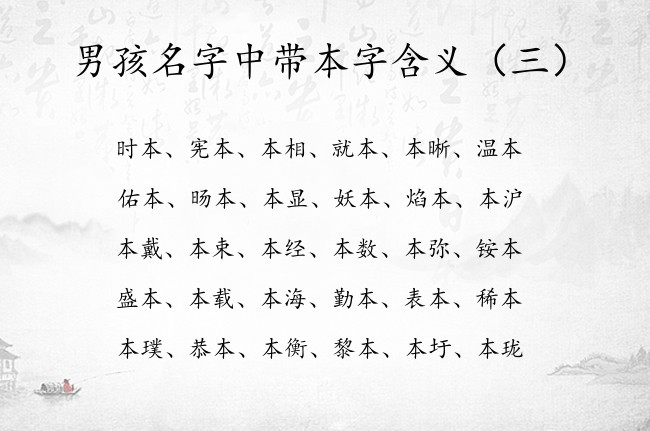 男孩名字中带本字含义（三）
时本、宪本、本相、就本、本晰、温本
佑本、旸本、本显、妖本、焰本、本沪
本戴、本束、本经、本数、本弥、铵本
盛本、本载、本海、勤本、表本、稀本
本璞、恭本、本衡、黎本、本圩、本珑